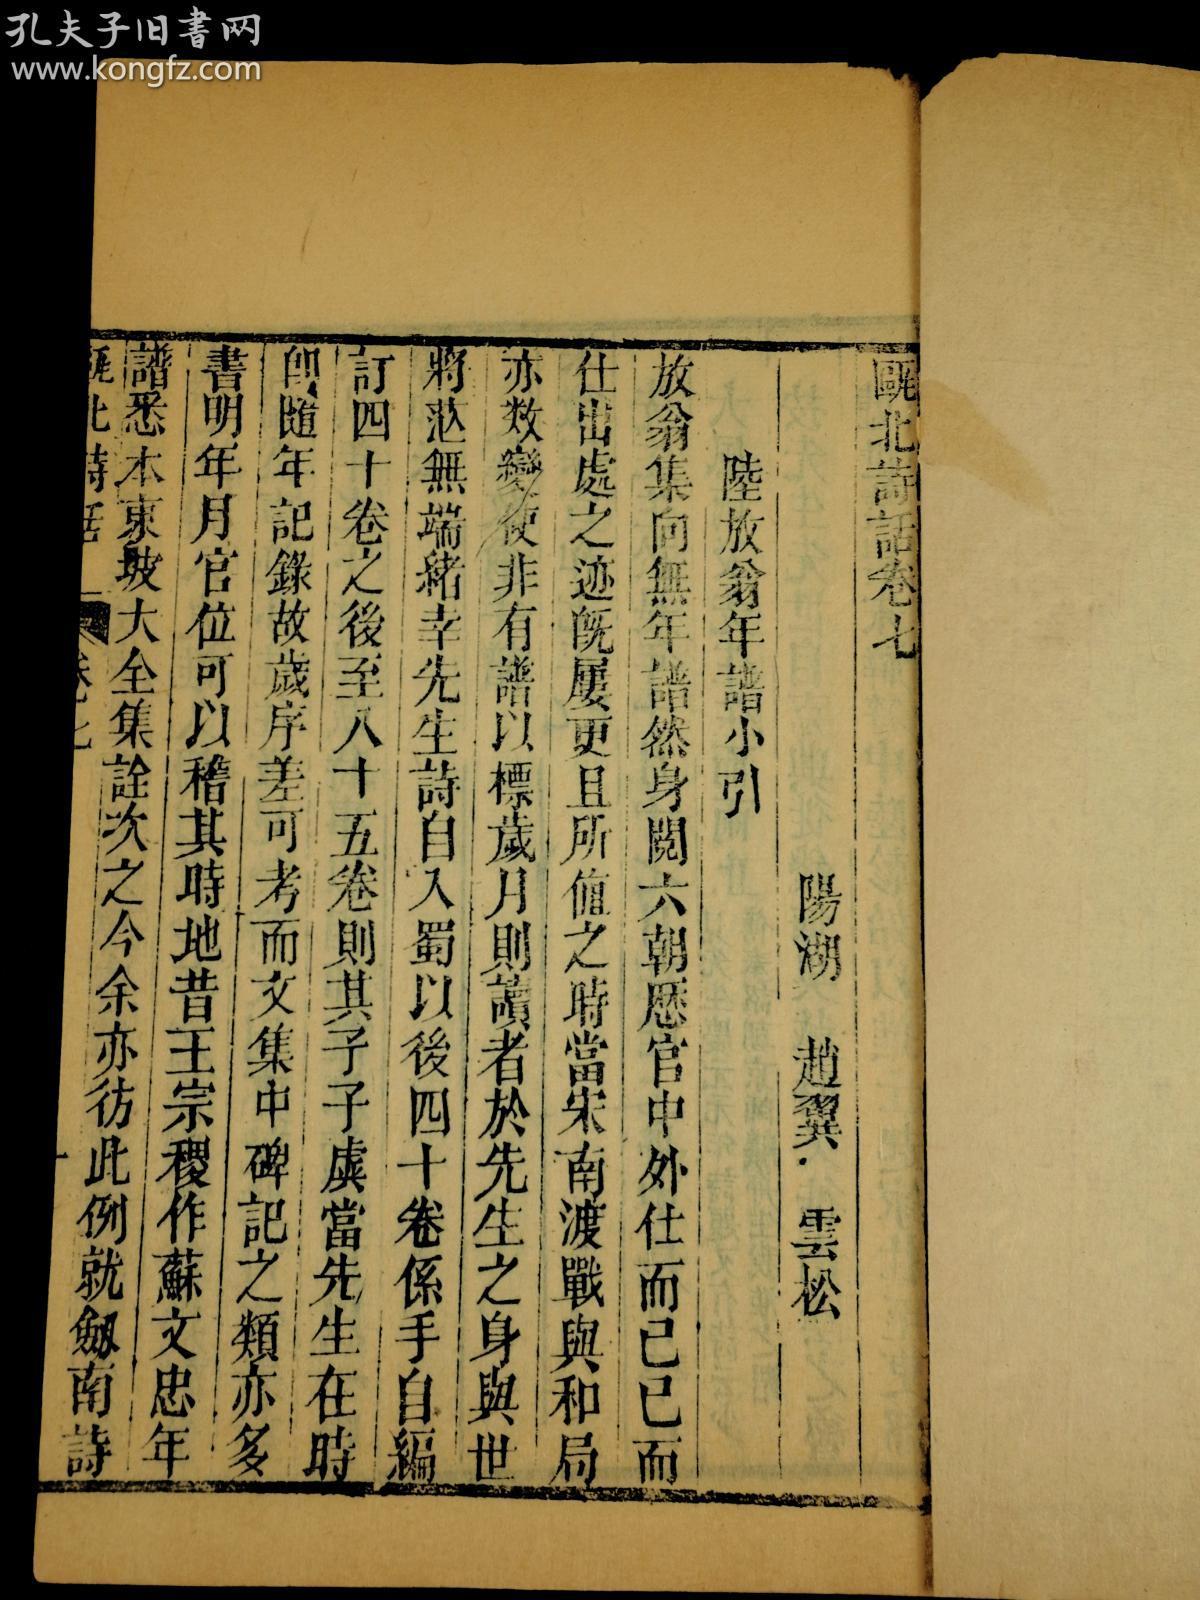 孔夫子旧書网
www.kongfz.com
甌北詩話卷七
陽湖 趙翼·雲松
陸放翁年譜小引
放翁集向無年譜然身閱六朝歷官中外仕而已已而
仕出處之迹旣屢更且所值之時當宋南渡戰與和局
亦数變使非有譜以標歲月則讀者於先生之身與世
將茫無端緒幸先生詩自入蜀以後四十卷係手自編
訂四十卷之後至八十五卷則其子子虡當先生在時
卽隨年記錄故歲序差可考而文集中碑記之類亦多
書明年月官位可以稽其時地昔王宗稷作蘇文忠年
譜悉本東坡大全集詮次之今余亦彷此例就劔南詩
甌北詩話 卷七 一